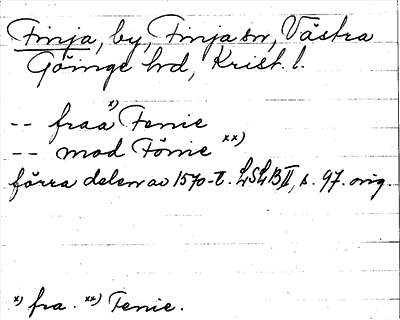 Finja, by, Finja sn, Västra
Göinge hd, Krist. l.
-- fraa x) Fenie
-- mod Fönie xx)
förra delen av 1570-t. LSLB II, s. 97. orig.
x) fra. xx) Fenie.